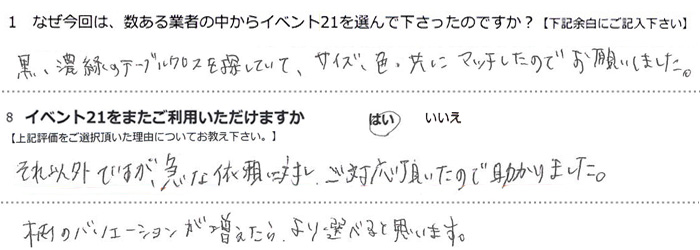 1 なぜ今回は、数ある業者の中からイベント21を選んで下さったのですか？【下記余白にご記入下さい】
黒、濃緑のテーブルクロスを探していて、サイズ、色、共にマッチしたのでお願いしました。
8 イベント21をまたご利用いただけますか はい いいえ
【上記評価をご選択頂いた理由についてお教え下さい。】
それ以外ですが、急な依頼に対し、ご対応頂いたので助かりました。
柄のバリエーションが増えたら、より選べると思います。